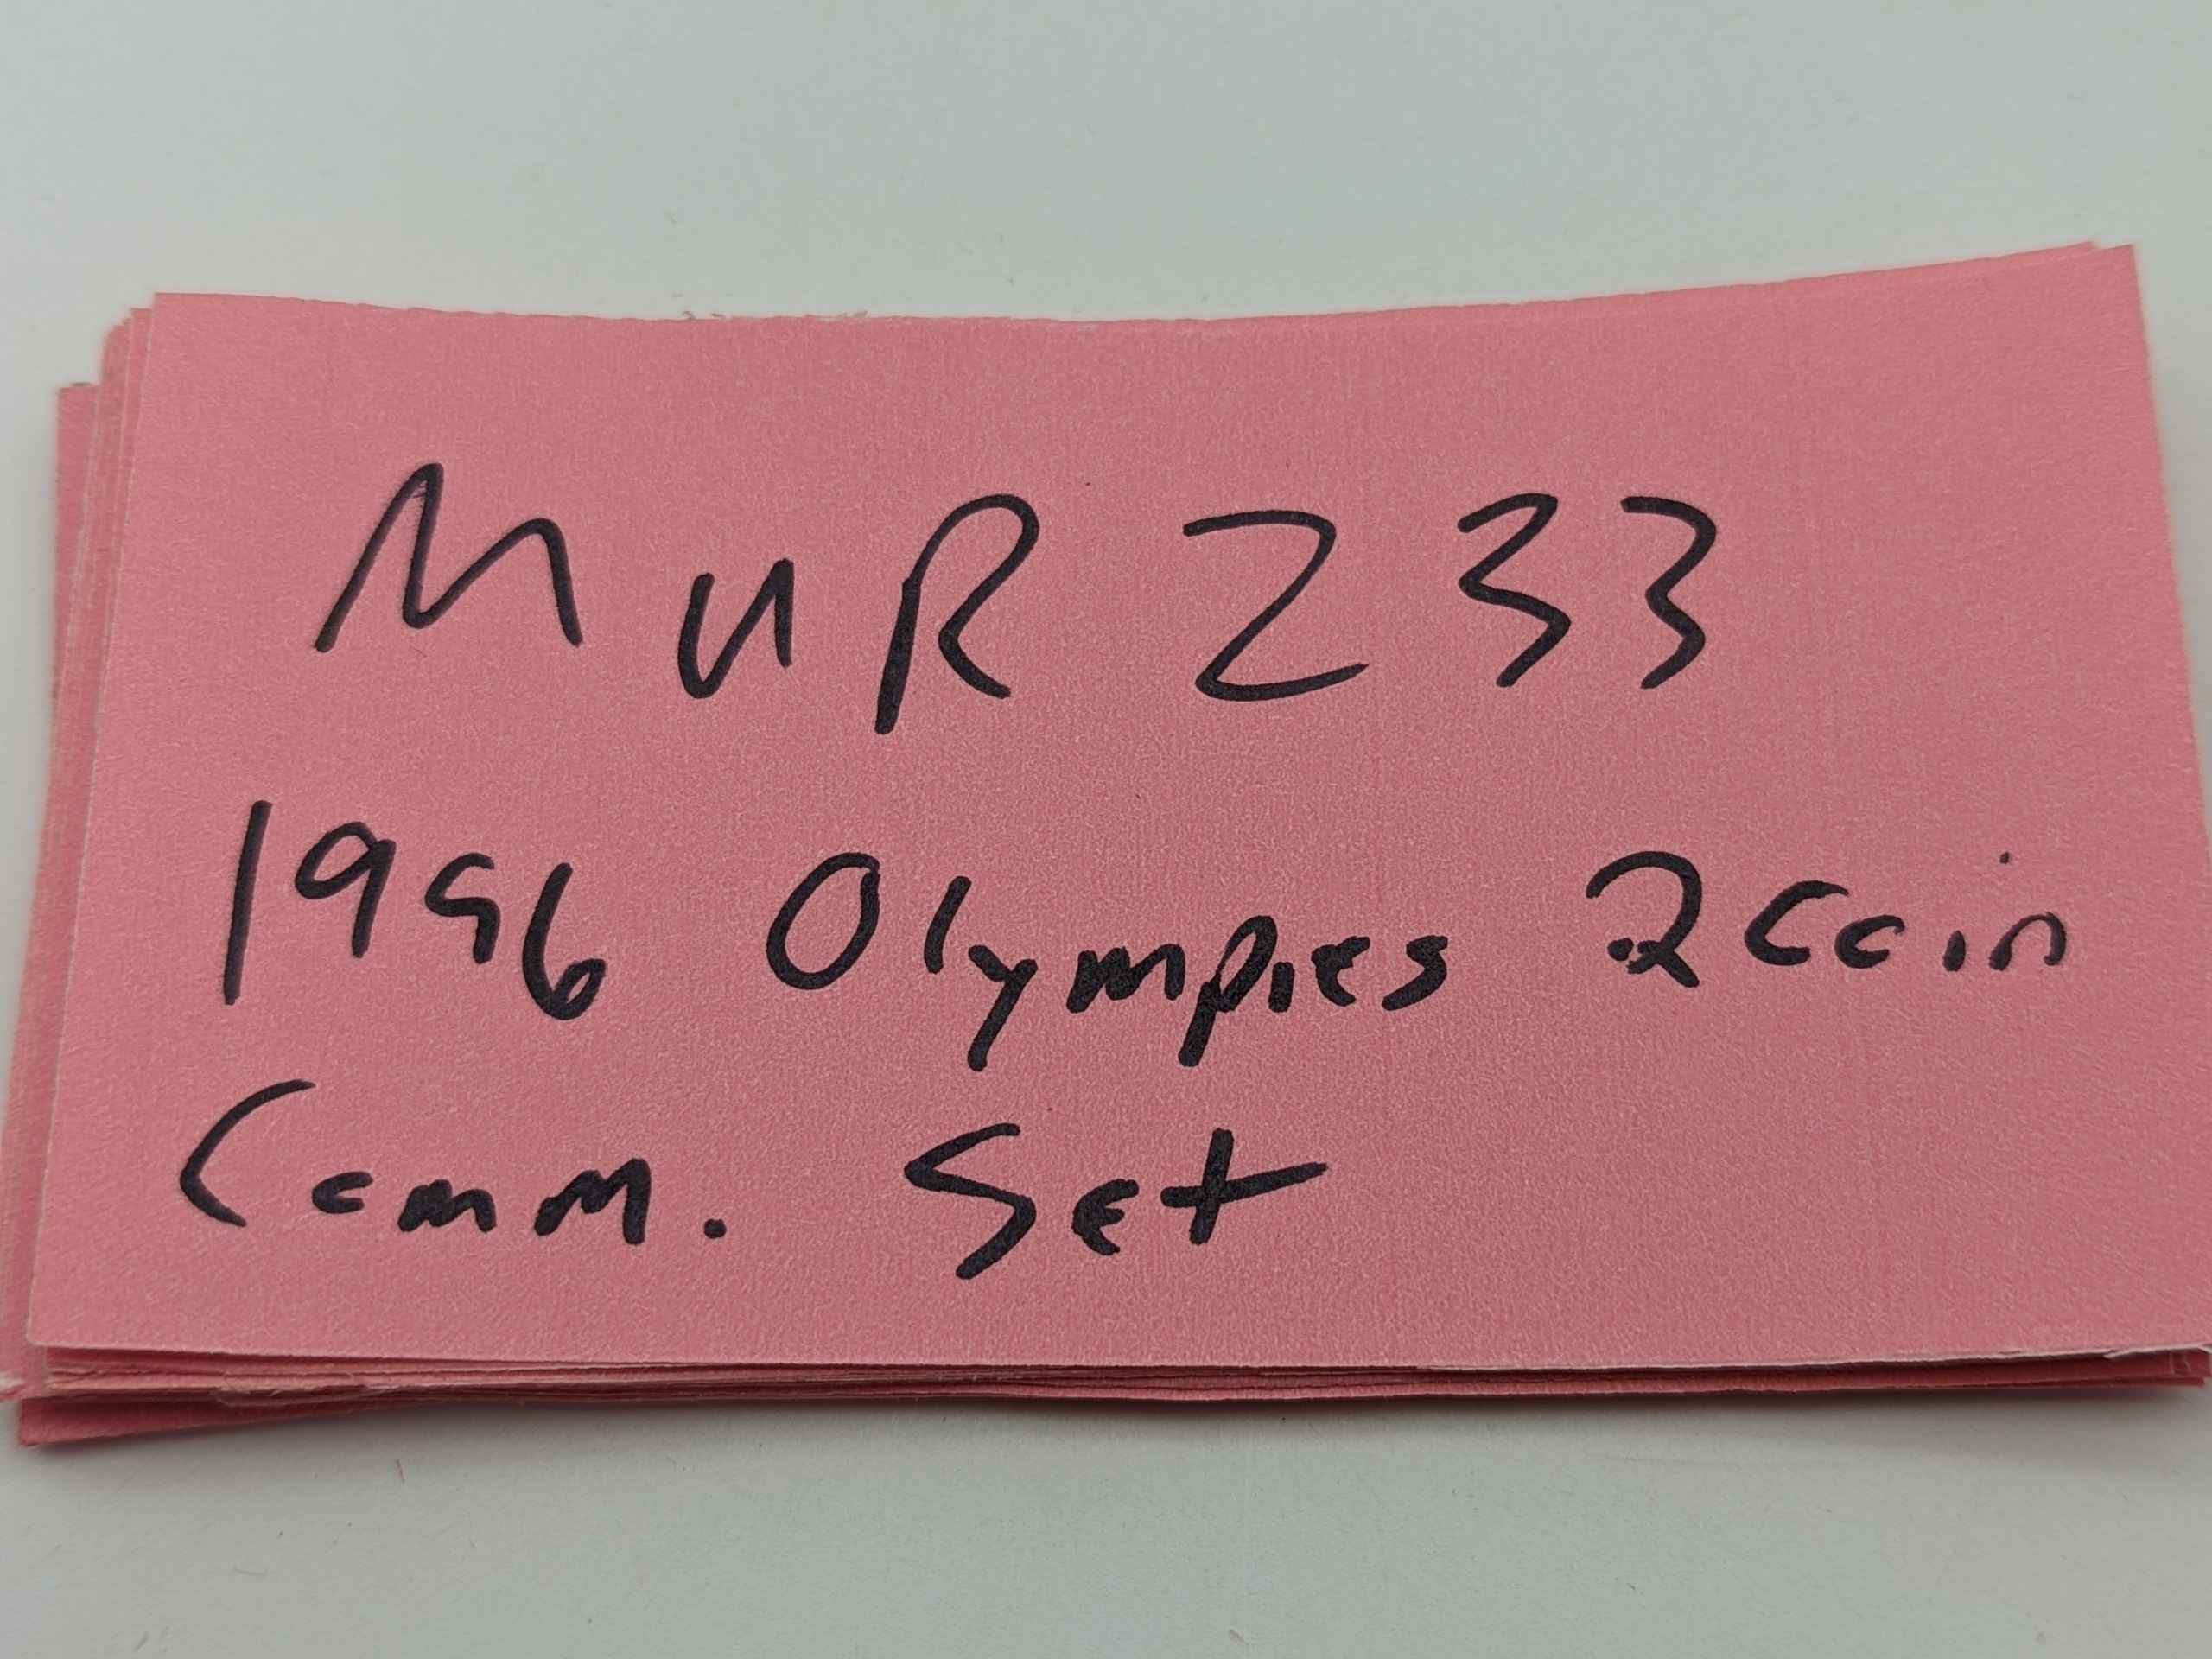 MUR 233
1996 Olympics 2 Coin
Comm. Set